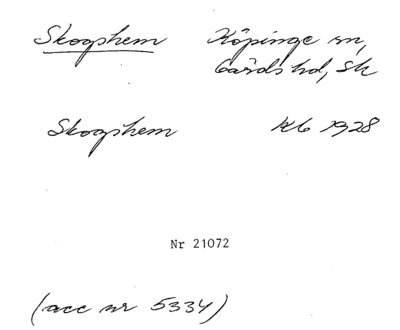 Skogshem Köpinge sn,
Gärds hd, Sk
Skogshem Kb 1928
Nr 21072
(acc nr 5334)